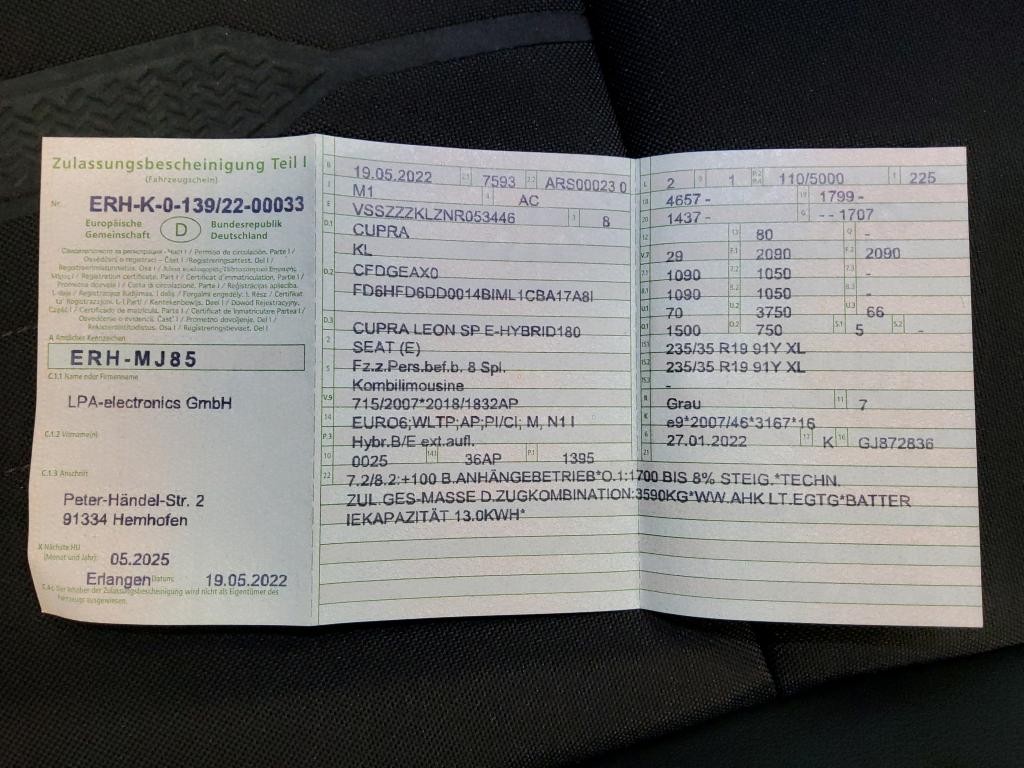 Zulassungsbescheinigung Teil I
(Fahrzeugschein)
Nr. ERH-K-0-139/22-00033
Europäische Gemeinschaft D Bundesrepublik Deutschland
A Amtliches Kennzeichen
ERH-MJ85
C.1.1 Name oder Firmenname
LPA-electronics GmbH
C.1.2 Vorname(n)
C.1.3 Anschrift
Peter-Händel-Str. 2
91334 Hemhofen
X Nächste HU
(Monat und Jahr) 05.2025
Erlangen Datum: 19.05.2022
C.4c Der Inhaber der Zulassungsbescheinigung wird nicht als Eigentümer des
Fahrzeugs ausgewiesen.
B 19.05.2022 2.1 7593 2.2 ARS00023 0
J M1 4 AC
E VSSZZZKLZNR053446 3 8
D.1 CUPRA
KL
D.2 CFDGEAX0
FD6HFD6DD0014BIML1CBA17A8I
D.3 CUPRA LEON SP E-HYBRID180
2 SEAT (E)
5 Fz.z.Pers.bef.b. 8 Spl.
Kombilimousine
V.9 715/2007*2018/1832AP
14 EURO6;WLTP;AP;PI/CI; M, N1 I
P.3 Hybr.B/E ext.aufl.
10 0025 14.1 36AP P.1 1395
22 7.2/8.2:+100 B.ANHÄNGEBETRIEB*O.1:1700 BIS 8% STEIG.*TECHN.
ZUL.GES-MASSE D.ZUGKOMBINATION:3590KG*WW.AHK LT.EGTG*BATTER
IEKAPAZITÄT 13.0KWH*
L 2 9 1 P.2 P.4 110/5000 T 225
18 4657 - 19 1799 -
20 1437 - G - - 1707
12 13 80 Q -
V.7 29 F.1 2090 F.2 2090
7.1 1090 7.2 1050 7.3 -
8.1 1090 8.2 1050 8.3 -
U.1 70 U.2 3750 U.3 66
O.1 1500 O.2 750 S.1 5 S.2 -
15.1 235/35 R19 91Y XL
15.2 235/35 R19 91Y XL
15.3 -
R Grau 11 7
K e9*2007/46*3167*16
6 27.01.2022 17 K 16 GJ872836
21